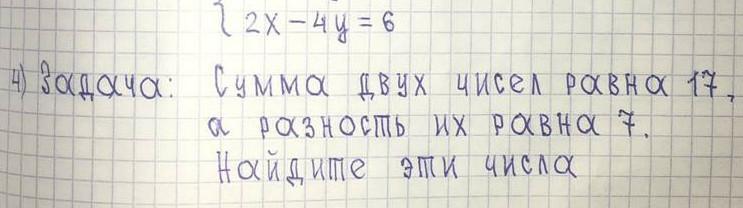 { 2x - 4y = 6
4) Задача: Сумма двух чисел равна 17,
а разность их равна 7.
Найдите эти числа